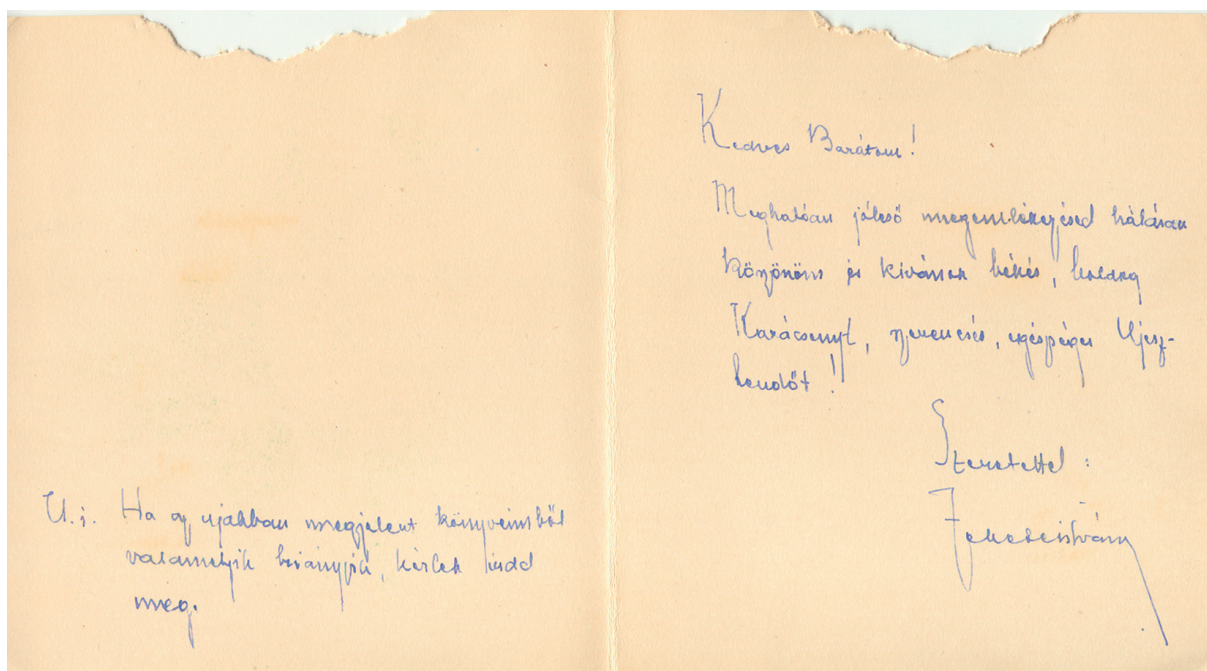 U. i. Ha az ujabban megjelent könyveimből
valamelyik hiányzik, kérlek írdd
meg.
Kedves Barátom!
Meghatóan jóleső megemlékezésed hálásan
köszönöm és kívánok békés, boldog
Karácsonyt, szerencsés, egészséges Ujesz-
tendőt!
Szeretettel:
Fekete István